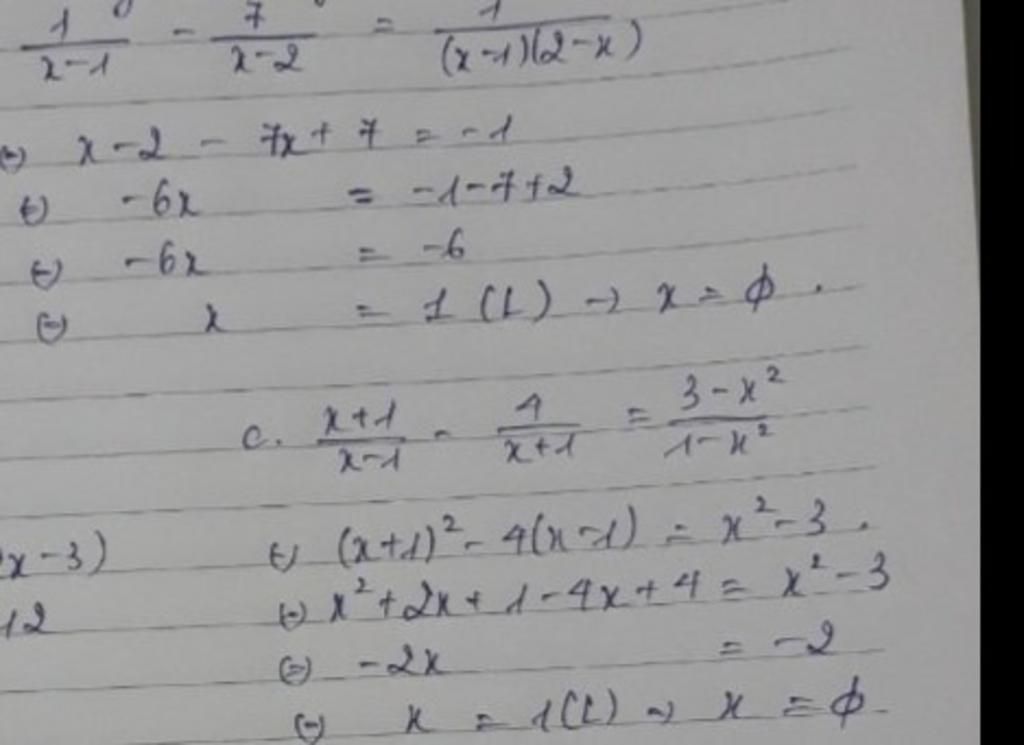 1/(x-1) - 7/(x-2) = 1/((x-1)(2-x))
(=) x-2 - 7x+7 = -1
(=) -6x = -1-7+2
(=) -6x = -6
(=) x = 1 (L) → x = ϕ.
c. (x+1)/(x-1) - 4/(x+1) = (3-x²)/(1-x²)
x-3) (=) (x+1)² - 4(x-1) = x²-3.
12 (=) x²+2x+1-4x+4 = x²-3
(=) -2x = -2
(=) x = 1(L) → x = ϕ